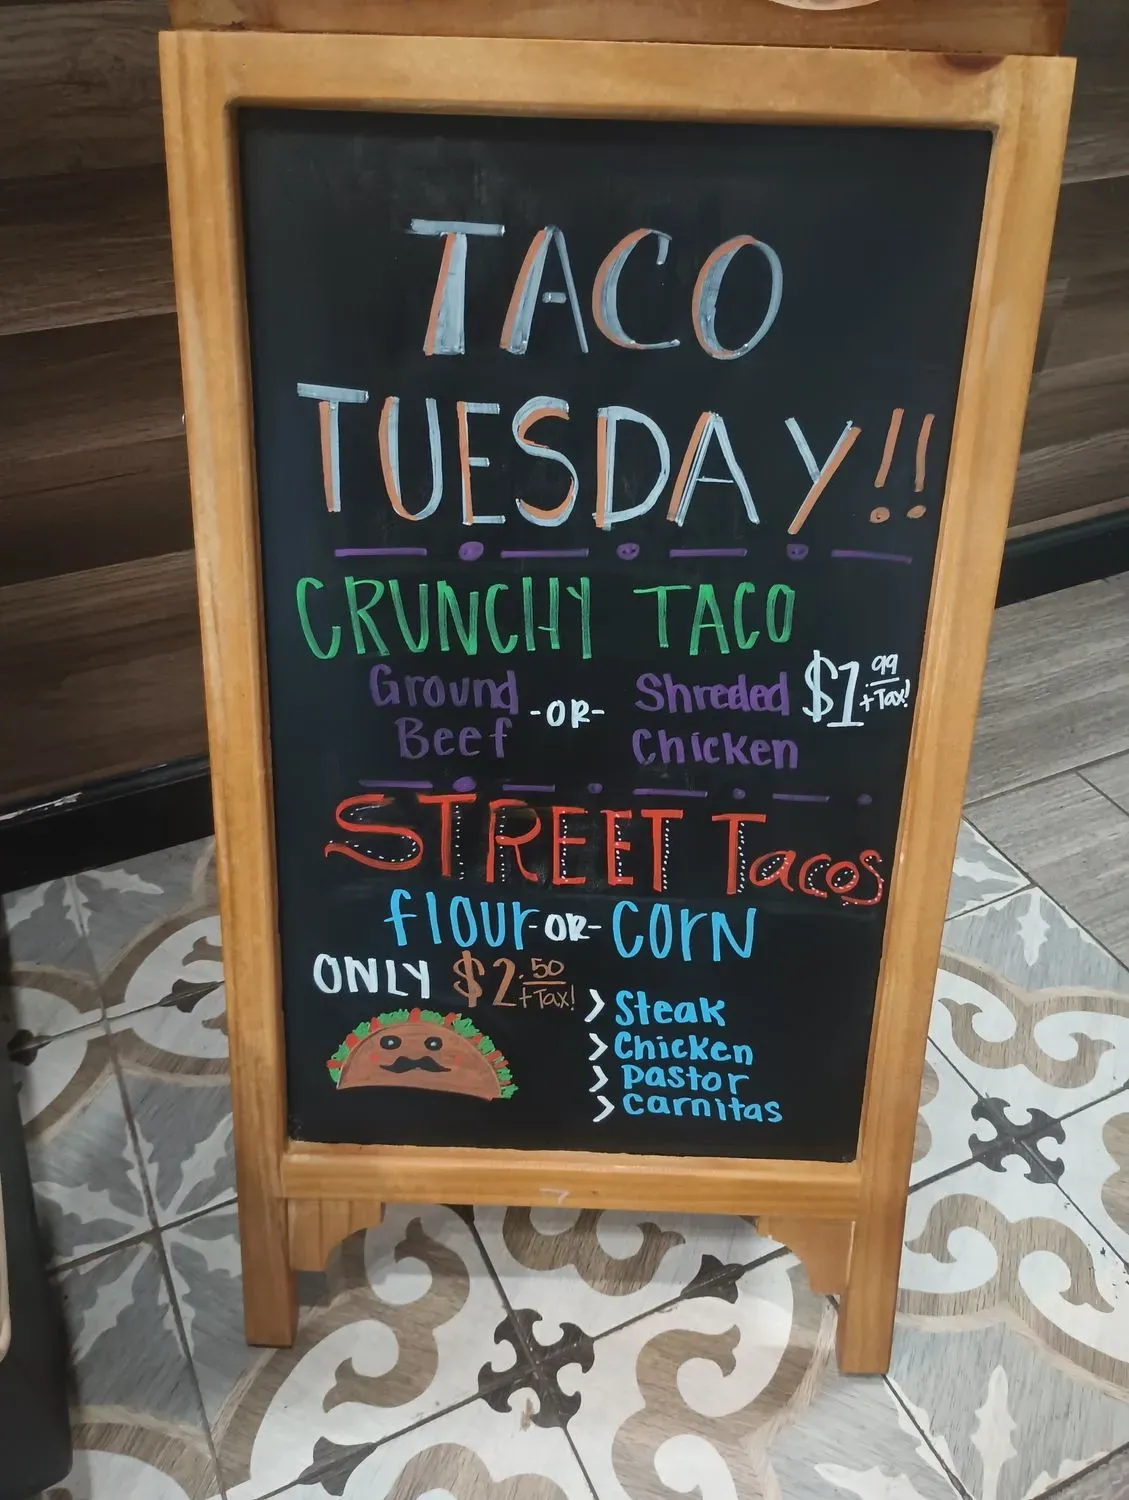 TACO
TUESDAY!!
CRUNCHY TACO
Ground Beef -OR- Shreded Chicken $1.99 +Tax!
STREET Tacos
flour -OR- CORN
ONLY $2.50 +Tax!
> Steak
> Chicken
> pastor
> carnitas